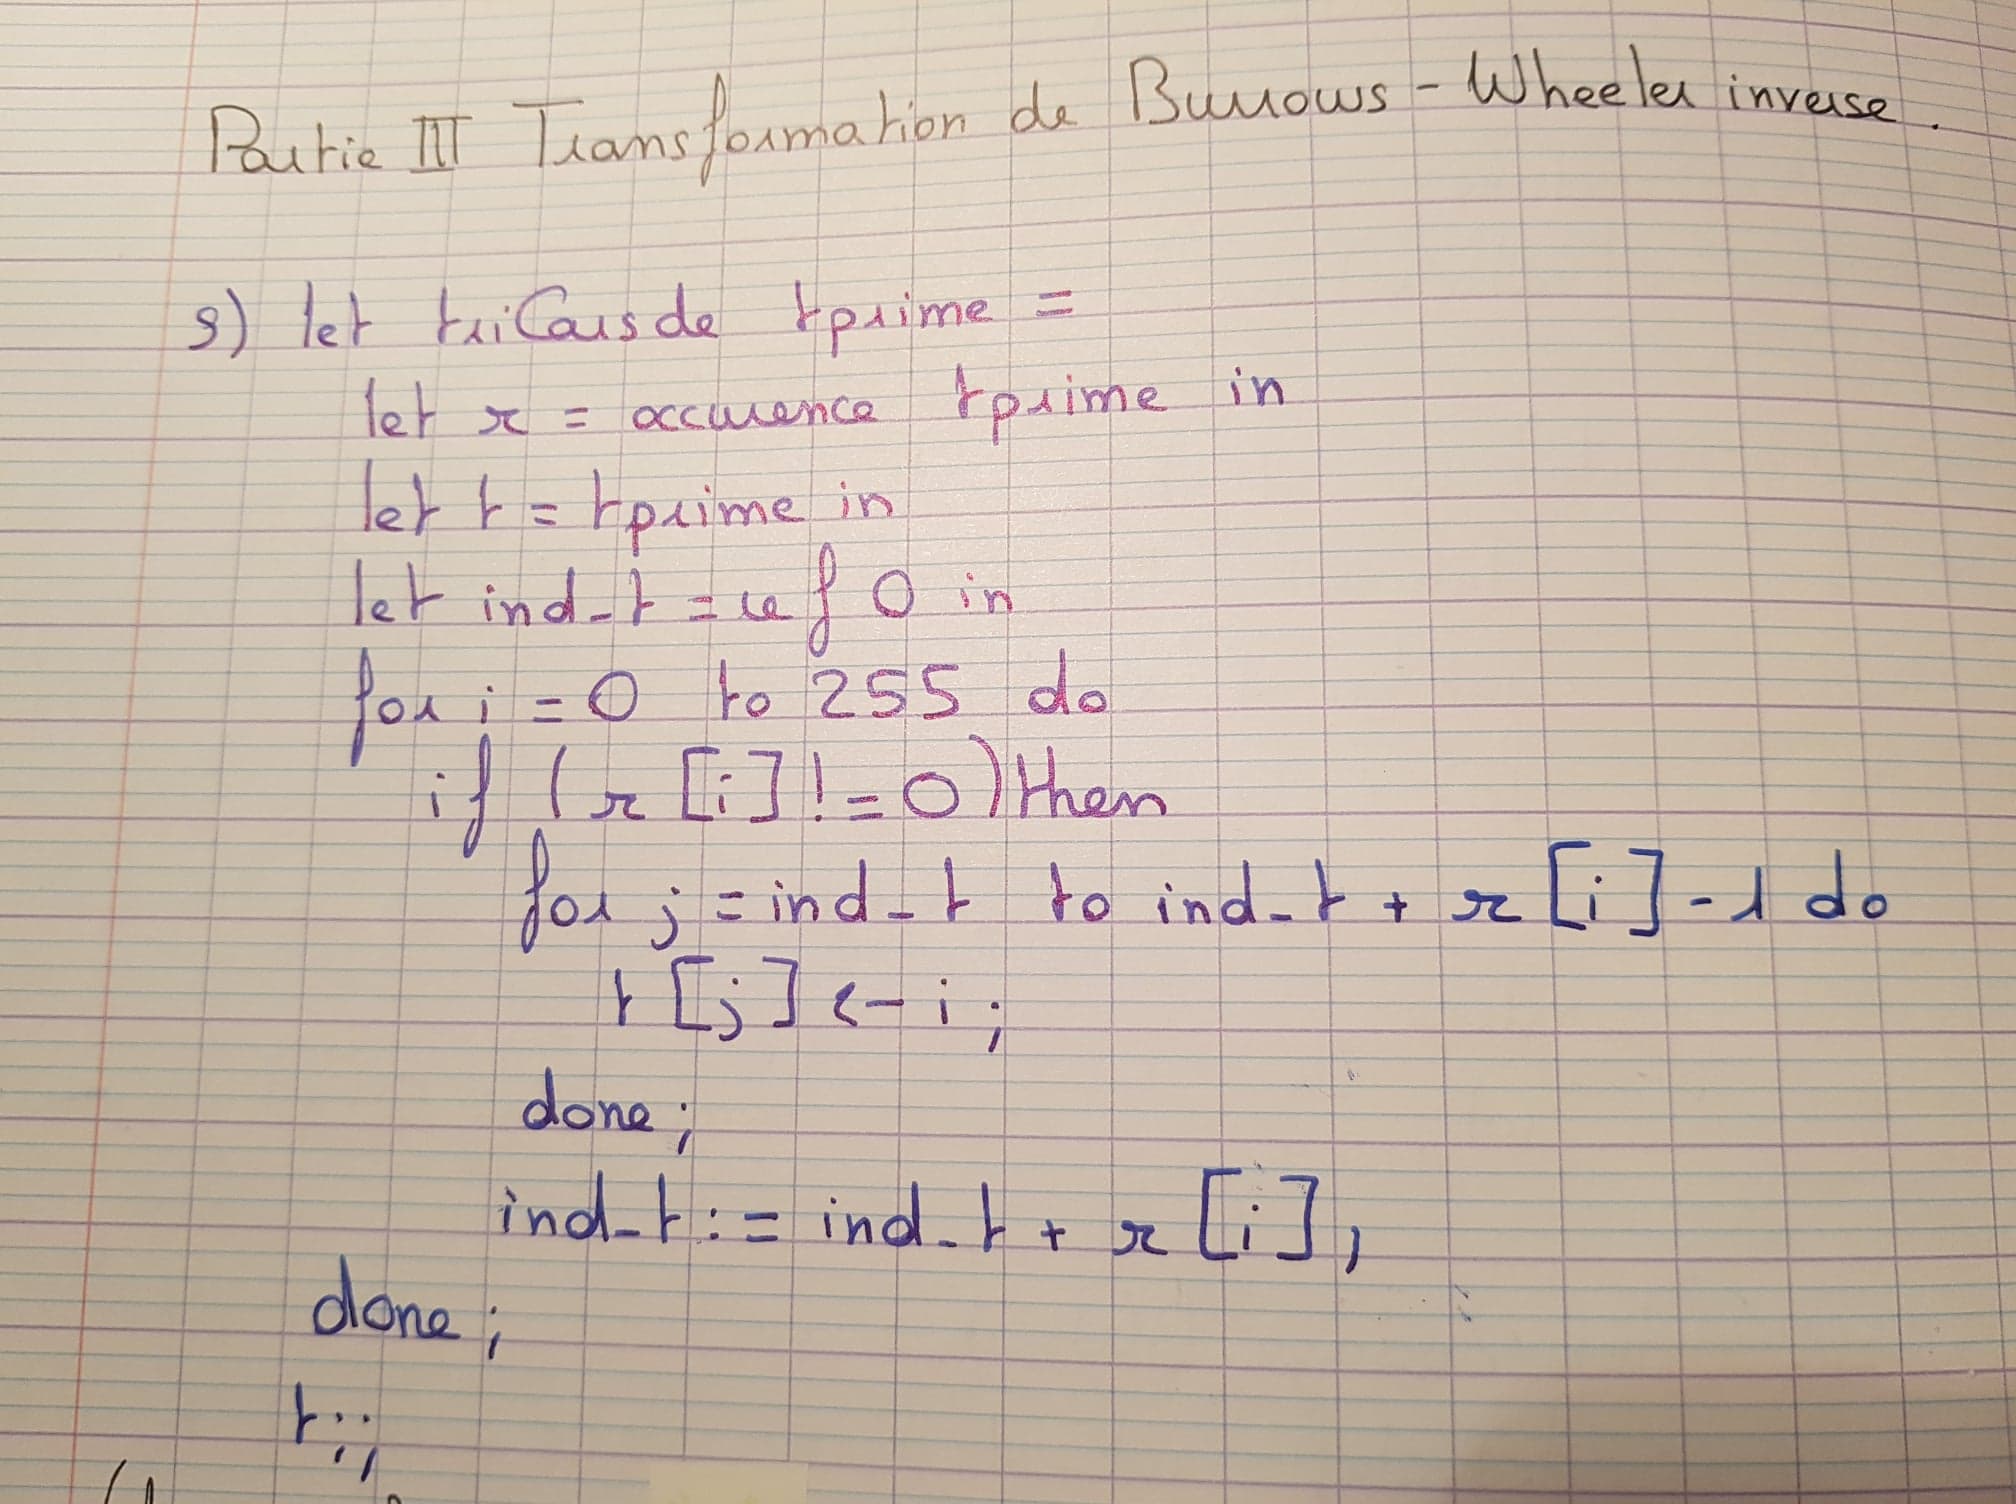 Partie III Transformation de Burrows - Wheeler inverse.
9) let triCarsde tprime =
let r = occurence tprime in
let t = tprime in
let ind_t = ref 0 in
for i = 0 to 255 do
if (r [i] != 0) then
for j = ind_t to ind_t + r [i] - 1 do
t [j] <- i ;
done ;
ind_t := ind_t + r [i] ,
done ;
t ;;